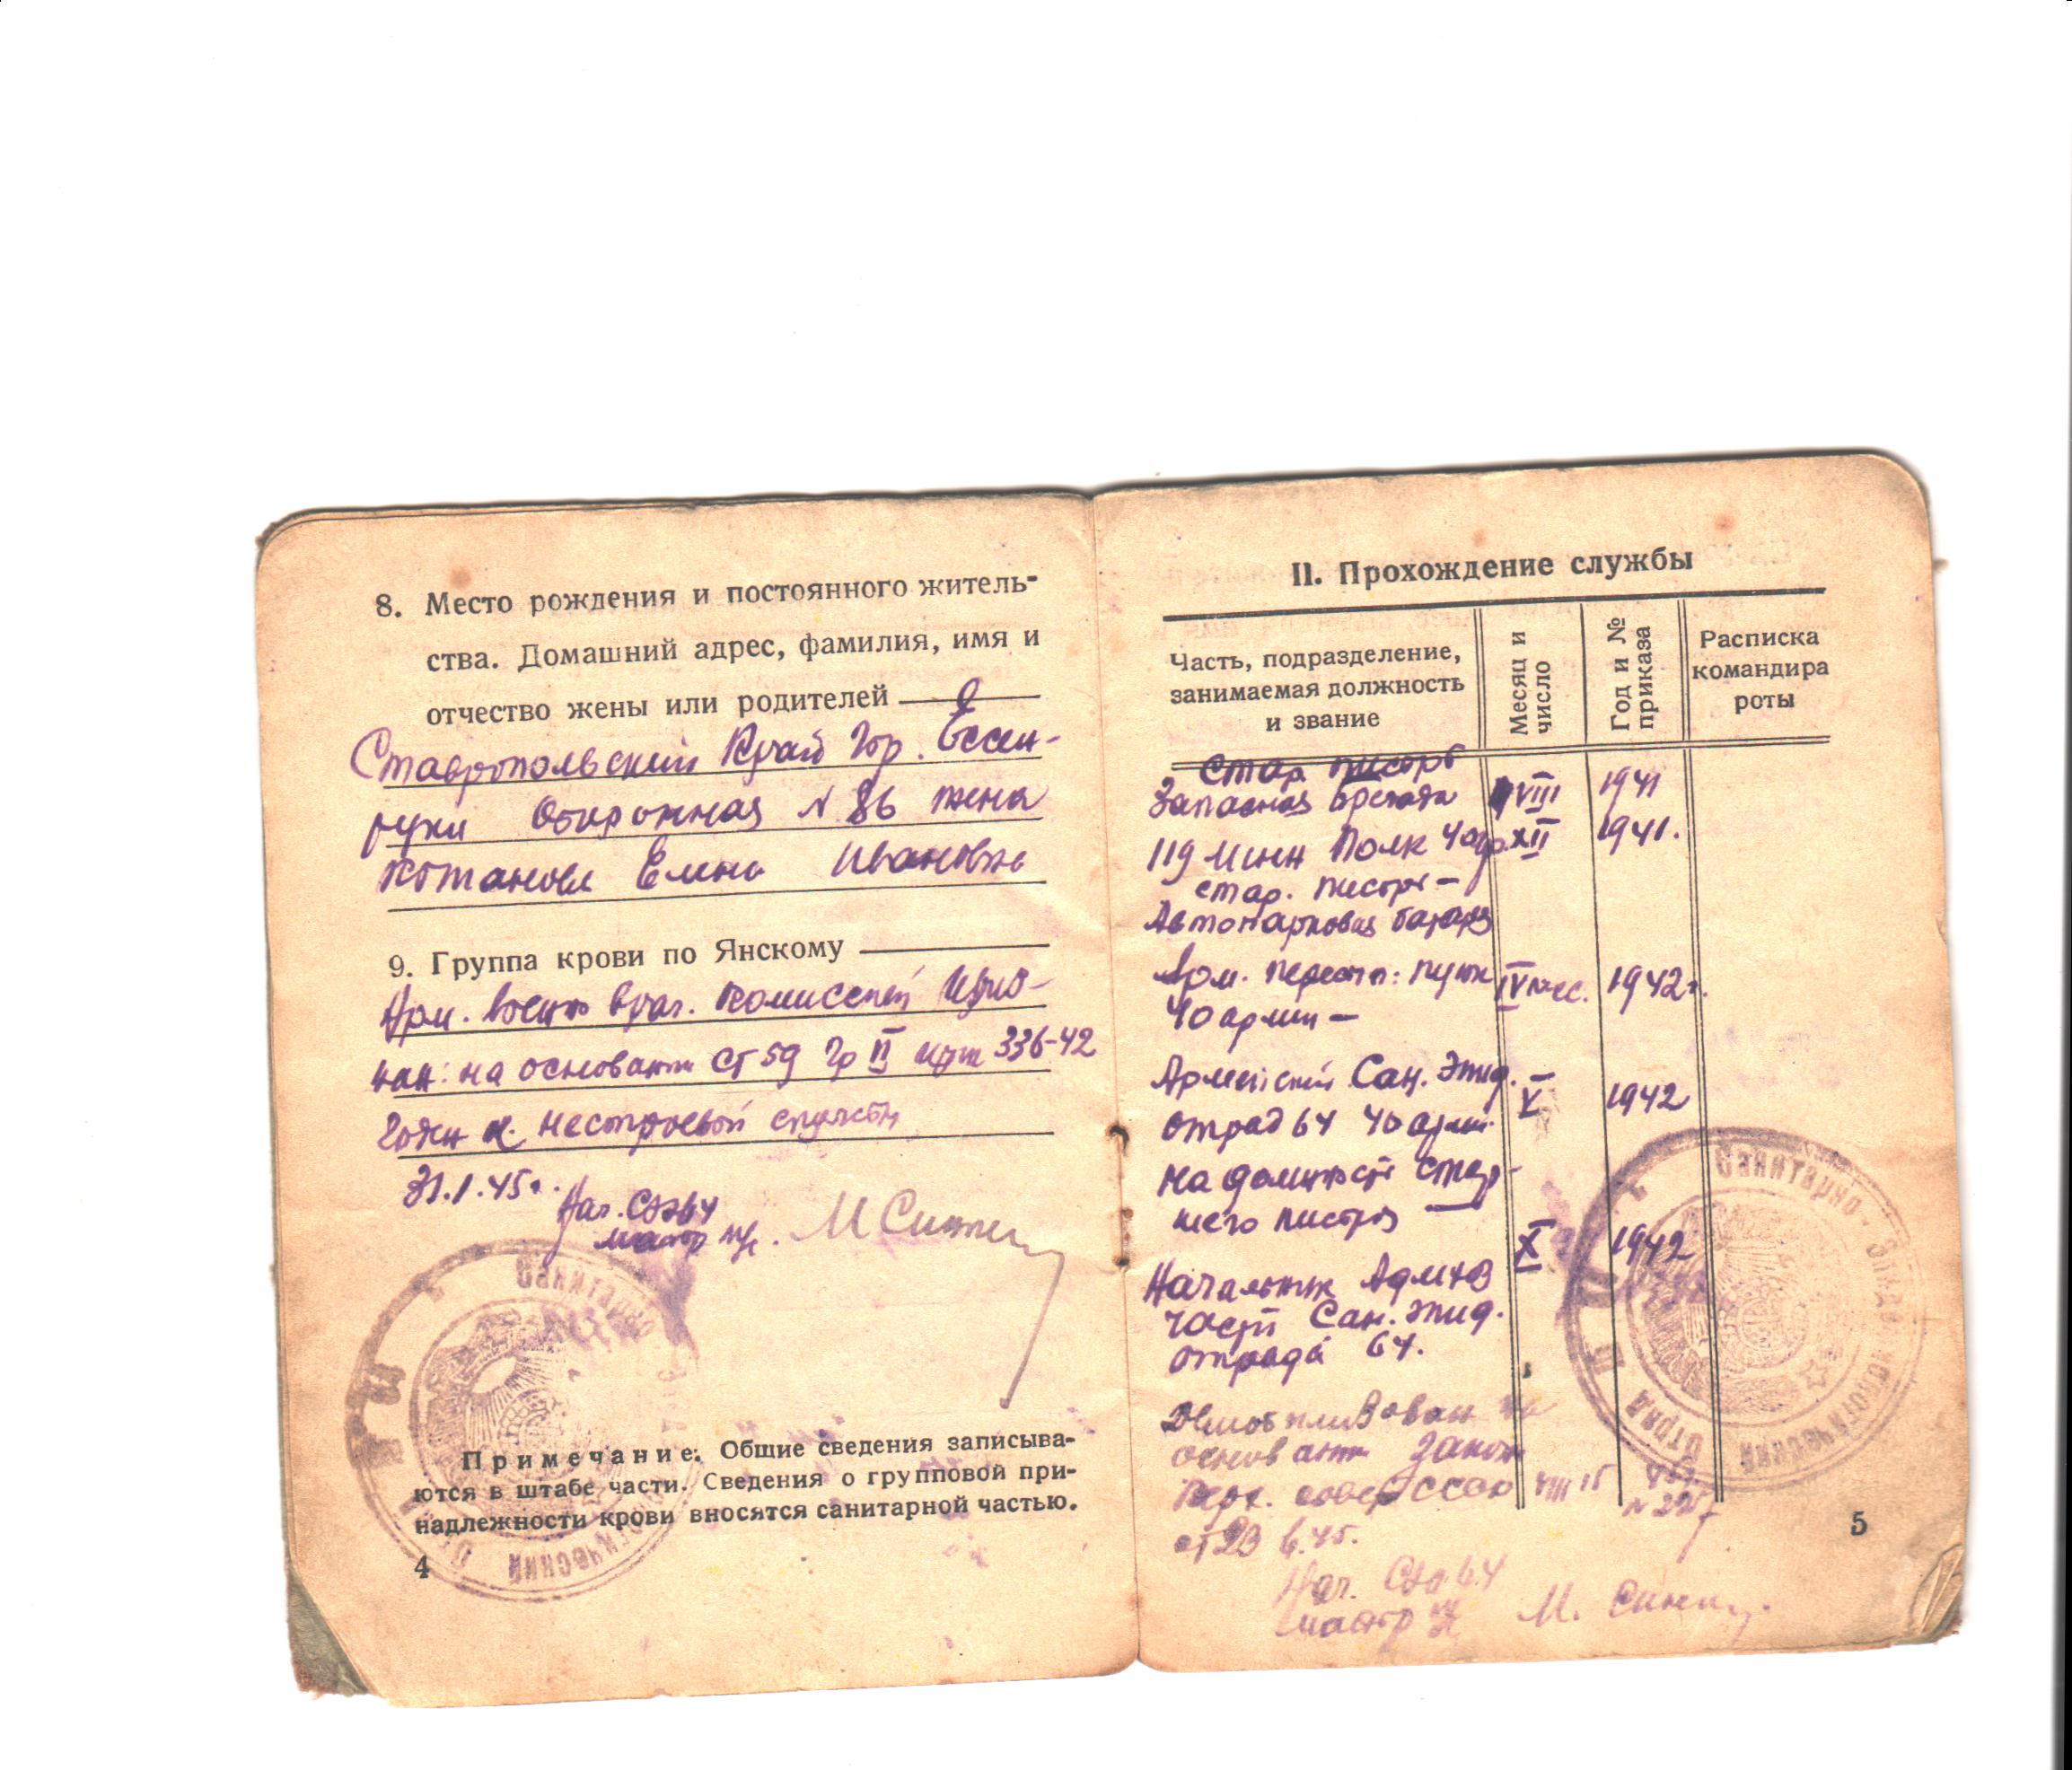 8. Место рождения и постоянного житель-
ства. Домашний адрес, фамилия, имя и
отчество жены или родителей
Ставропольский Край Гор. Ессен-
туки № 86 жена
Елена Ивановна
9. Группа крови по Янскому
Арм. воен врач. Комиссией призн-
нан: на основании СТ 59 Гр II 336-42
Годен к нестроевой службы
31.1.45г.
Нач. СЭО 64
майор м/с. М Сини
Санитарно
Примечание. Общие сведения записыва-
ются в штабе части. Сведения о групповой при-
надлежности крови вносятся санитарной частью.
4
II. Прохождение службы
Часть, подразделение,
занимаемая должность
и звание
Месяц и
число
Год и №
приказа
Расписка
командира
роты
Стар писарь
Запасная бригада VIII 1941
119 Мин Полк 40 ар XII 1941.
стар. писарь –
Автопарковая батарея
Арм. пересып: пункт IV мес. 1942г.
40 армии –
Армейский Сан. Эпид. V 1942
отряд 64 40 арм.
на должность стар-
шего писаря –
Начальник Админ X 1942
части Сан. эпид.
отряда 64.
Демобилизован на
основании закона
Верх. совет СССР VIII 15
от 23 6.45.
Нач. СЭО 64
майор м/с М. Сини
Санитарно-Эпидемиологический Отряд
5